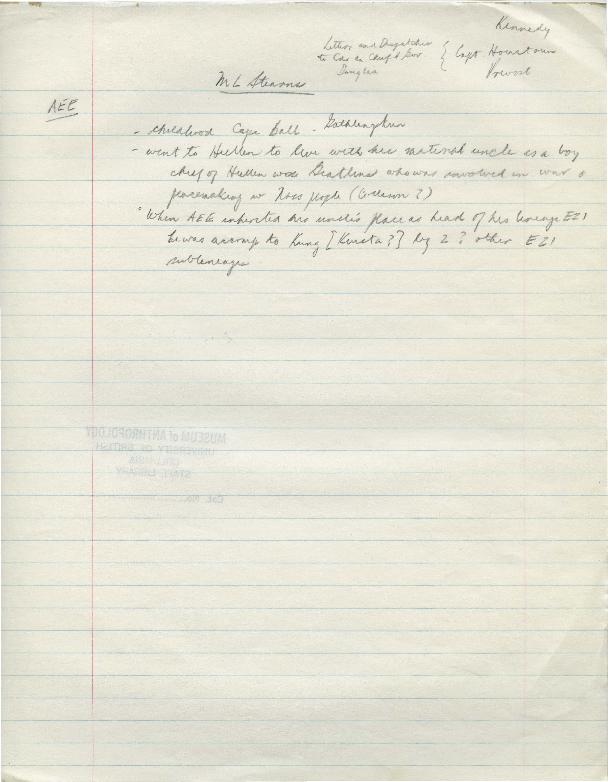 Kennedy
Letters and Despatches
to Com in Chief & Gov { Capt Houstoun
Douglas Prevost
M L Stearns
AEE
- childhood Cape Ball -
- went to Hiellen to live with his maternal uncle as a boy
chief of Hiellen was who was involved in war &
peacemaking w Nass people ( ?)
" When AEE inherited his uncle's place as head of his lineage E21
he was accomp to Kung [Kiusta?] by 2 ? other E21
sublineages
MUSEUM of ANTHROPOLOGY
UNIVERSITY OF BRITISH
COLUMBIA
STAFF LIBRARY
Cat. No.